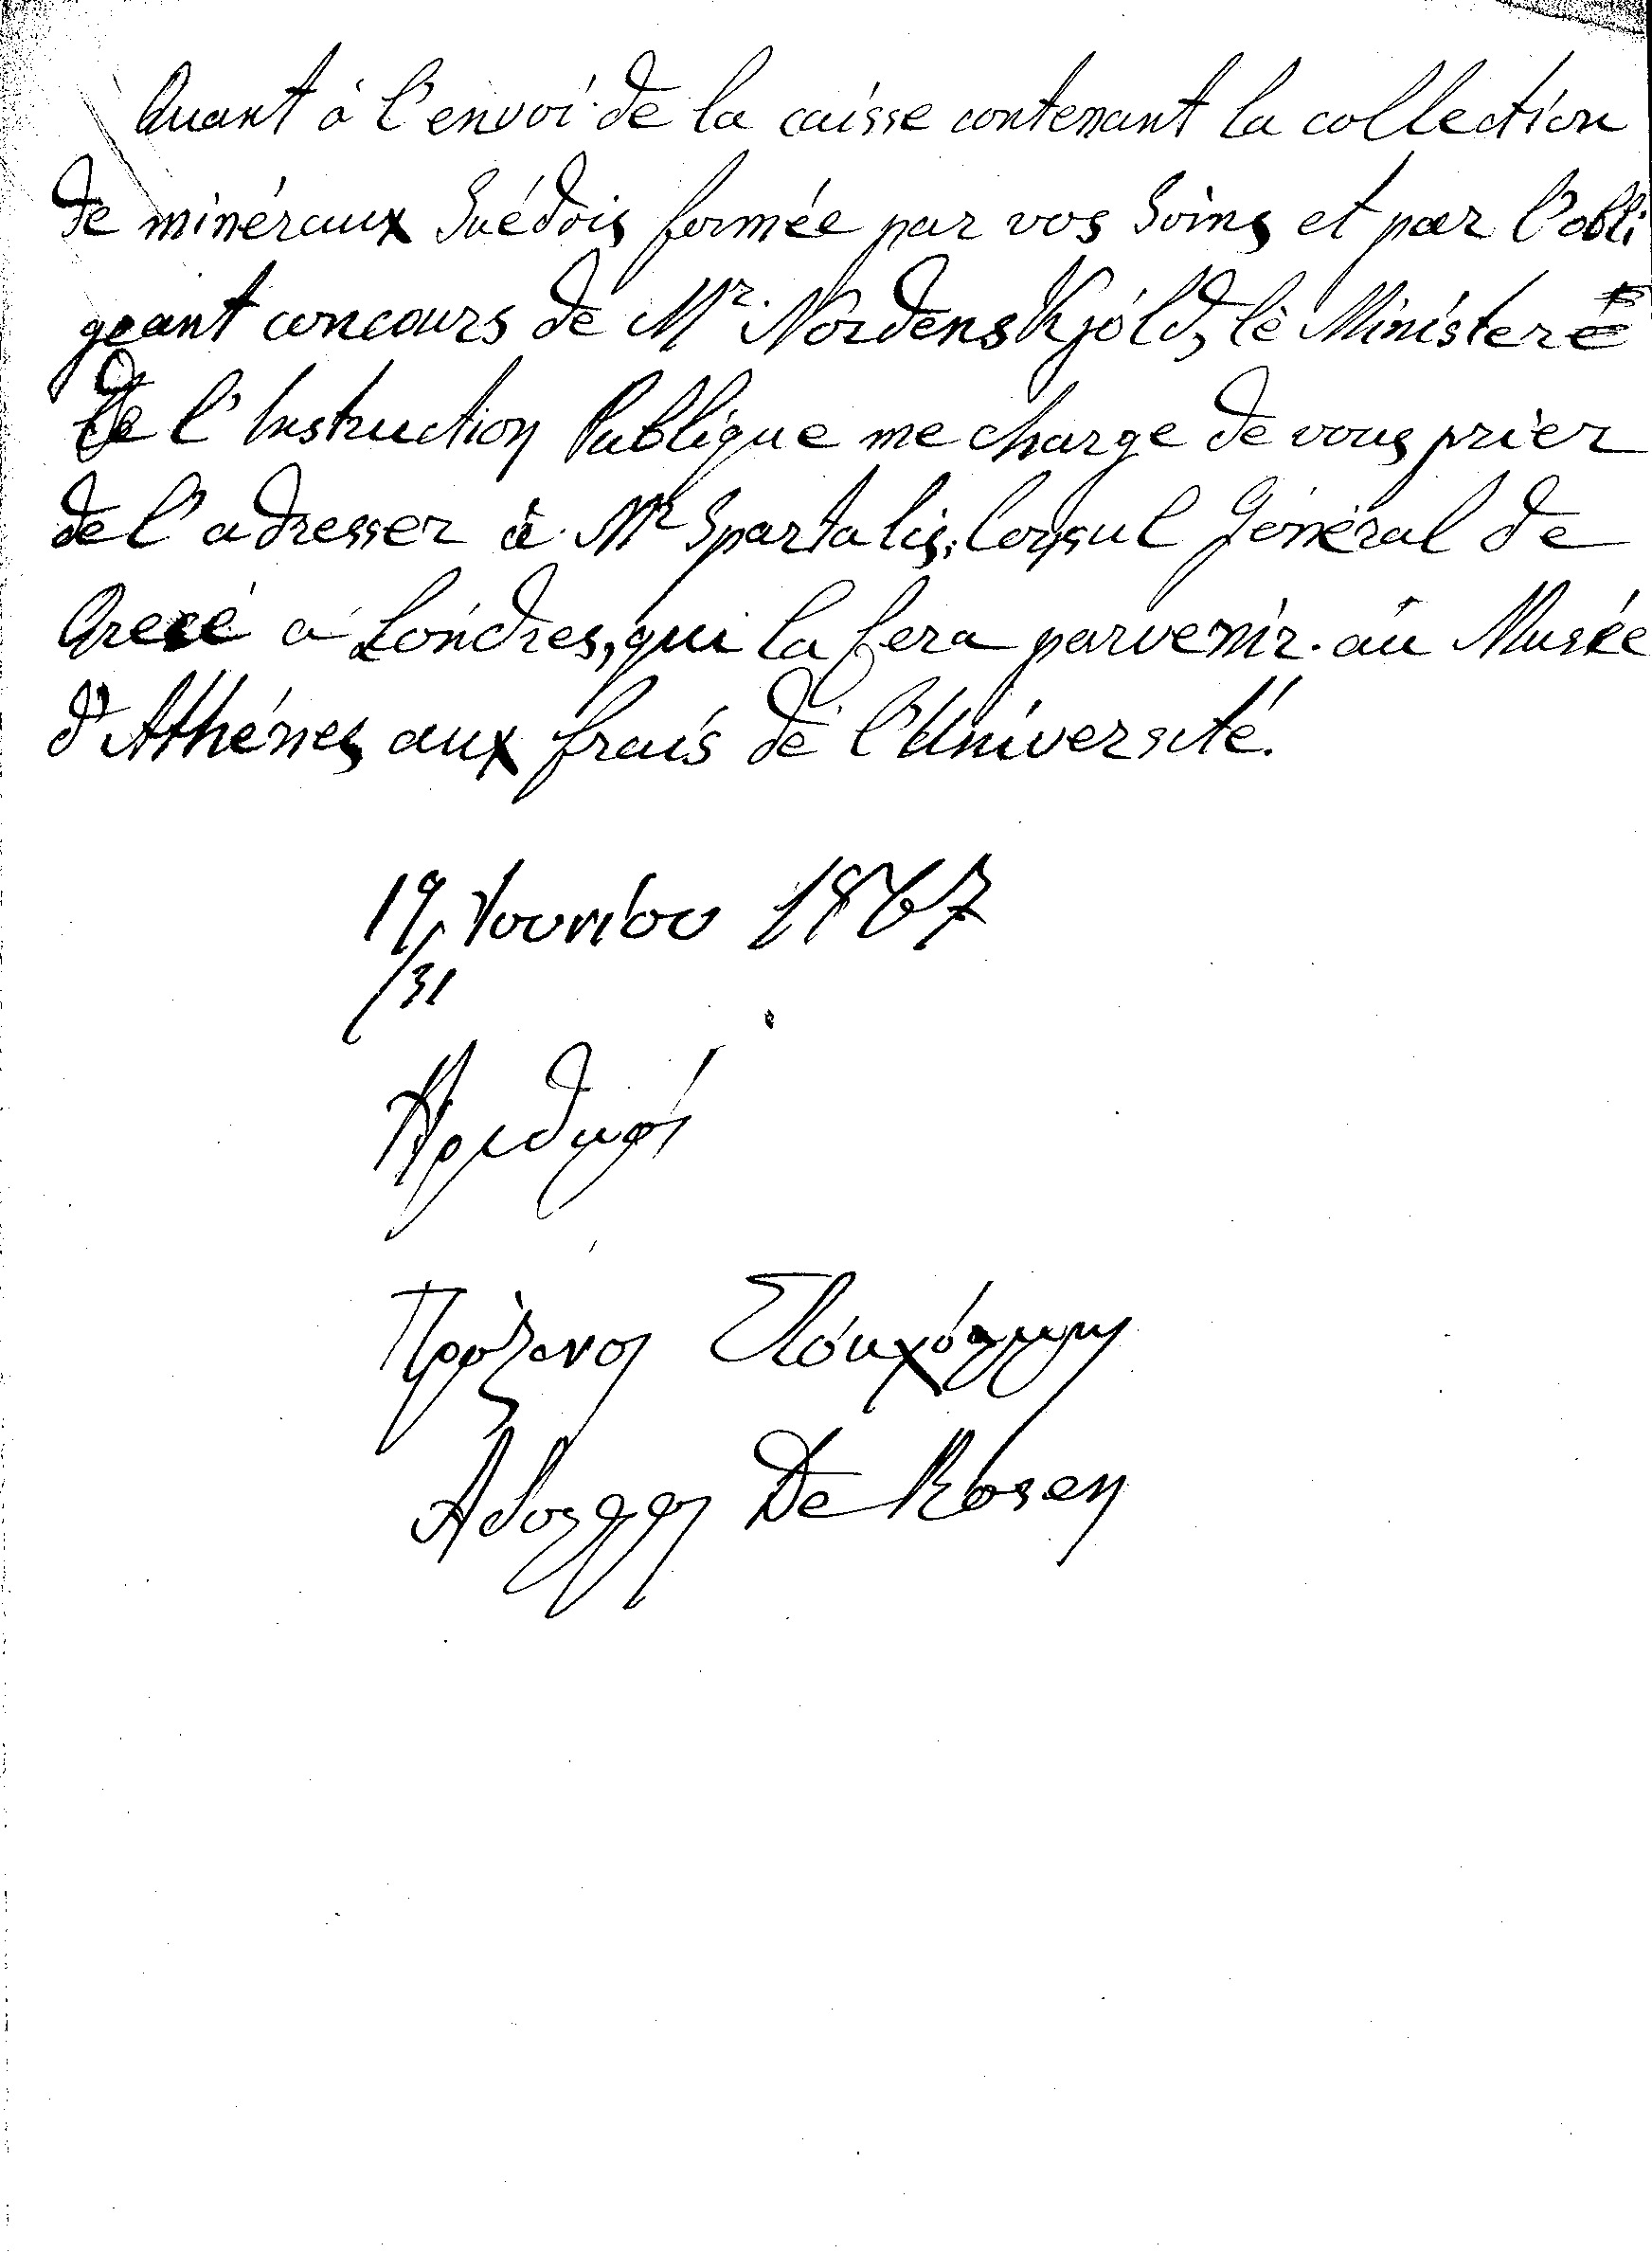 Quant à l'envoi de la caisse contenant la collection
de minéraux Suédois formée par vos Soins et par l'obli
geant concours de Mr. Nordenskjöld, le Ministere
de l'Instruction Publique me charge de vous prier
de l'adresser à Mr Spartalis, Consul Général de
Grece à Londres, qui la fera parvenir au Musée
d'Athénes aux frais de l'Université.
19 Ιουνίου 1867
/31
Πρόξενος Στόκχόλμης
Αδολφος De Rosen